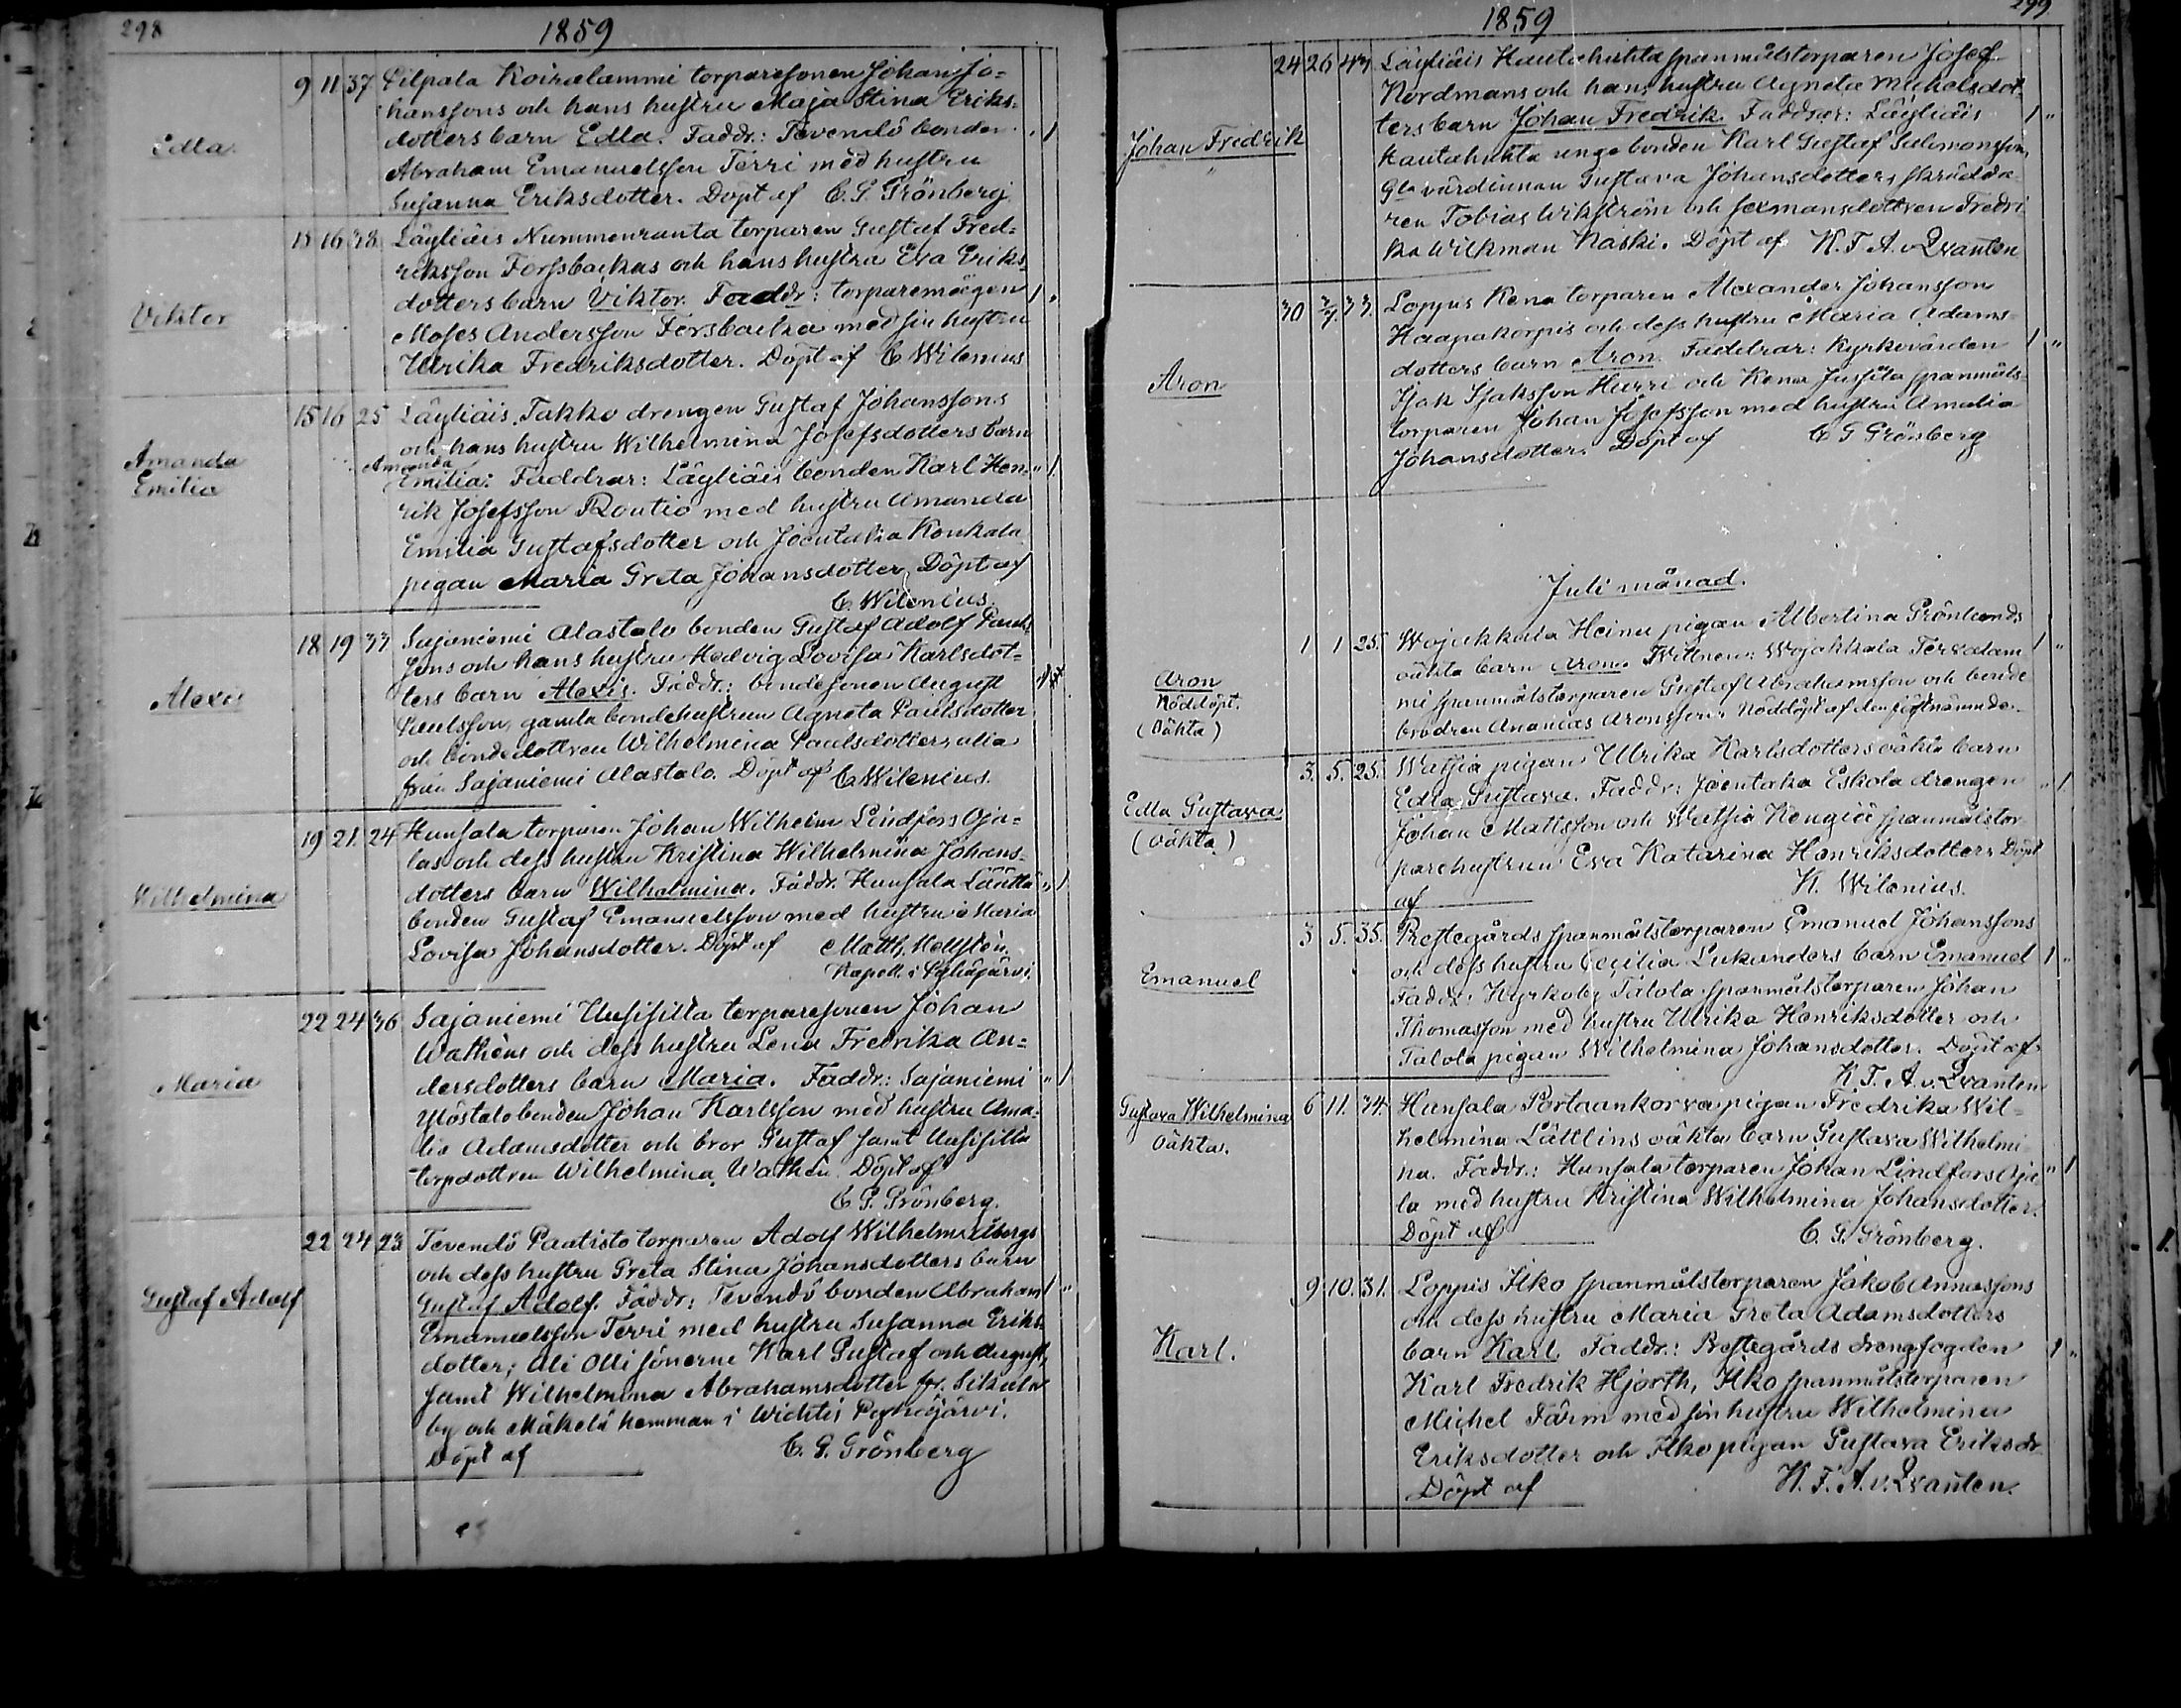 298
1859
Edla.
9 11 37 Pilpala Koiralammi torparesonen Johan Jo-
hanssons och hans hustru Maja Stina Eriks-
dotters barn Edla. Faddr.: Tevendö bonden " 1
Abraham Emanuelsson Terri med hustru
Susanna Eriksdotter. Döpt af C. G. Grönberg
Viktor
15 16 38 Läyliäis Nummenranta torparen Gustaf Fred-
riksson Forssbackas och hans hustru Eva Eriks-
dotters barn Viktor. Faddr: torparemågen 1 "
Moses Andersson Forsbacka med sin hustru
Ulrika Fredriksdotter. Döpt af C Wilenius
Amanda
Emilia
15 16 25 Läyliäis Takko drengen Gustaf Johanssons
och hans hustru Wilhelmina Josefsdotters barn
Amanda
Emilia. Faddrar: Läyliäis bonden Karl Hen- " 1
rik Josefsson Routio med hustru Amanda
Emilia Gustafsdotter och Joentaka Konkala
pigan Maria Greta Johansdotter, Döpt af
C. Wilenius.
Alexis
18 19 33 Sajaniemi Alastalo bonden Gustaf Adolf Pauls-
sons och hans hustru Hedvig Lovisa Karlsdot-
ters barn Alexis. Faddr.: bondesonen August
Paulsson, gamla bondehustrun Agneta Paulsdotter
och bondedottren Wilhelmina Paulsdotter, alla
från Sajaniemi Alastalo. Döpt af C. Wilenius.
Wilhelmina
19 21. 24 Hunsala torparen Johan Wilhelm Lindfors Oja-
las och dess hustru Kristina Wilhelmina Johans-
dotters barn Wilhelmina. Faddr. Hunsala Länttä " 1
bonden Gustaf Emanuelsson med hustru Maria
Lovisa Johansdotter. Döpt af Matth. Hellstén.
Kapell. i Pyhäjärvi.
Maria
22 24 36 Sajaniemi Uusisilta torparesonen Johan
Wathéns och dess hustru Lena Fredrika An-
dersdotters barn Maria. Faddr.: Sajaniemi " 1
Ylöstalo bonden Johan Karlsson med hustru Ama-
lia Adamsdotter och bror Gustaf samt Uusisilta
torpdottren Wilhelmina Wathén. Döpt af
C. G. Grönberg.
Gustaf Adolf
22 24 23 Tevendö Paatisto torparen Adolf Wilhelm
och dess hustru Greta Stina Johansdotters barn
Gustaf Adolf. Faddr: Tevendö bonden Abraham 1 "
Emanuelsson Terri med hustru Susanna Eriks-
dotter; Ali Olli sönerne Karl Gustaf och August,
samt Wilhelmina Abrahamsdotter fr. Sikala
by och Mäkelä hemman i Wichtis Pyhäjärvi.
Döpt af C. G. Grönberg
1859
299.
Johan Fredrik
"
24 26 43 Läyliäis Hautahuhta spanmålstorparen Josef
Nordmans och hans hustru Agneta Michelsdot-
ters barn Johan Fredrik. Faddrar: Läyliäis 1 "
Kautahuhta unga bonden Karl Gustaf Salomonsson,
Gla värdinnan Gustava Johansdotter, skrädda-
ren Tobias Wikström och sexmansdottren Fredri
ka Wilkman Kaski. Döpt af K. F. A. v. Qvanten
Aron
30 3/7. 33. Loppis Kena torparen Alexander Johansson
Haapakorpis och dess hustru Maria Adams-
dotters barn Aron. Faddrar: Kyrkovärden 1 "
Isak Isaksson Hurri och Kena Jussila spanmåls-
torparen Johan Josefsson med hustru Amalia
Johansdotter. Döpt af C G Grönberg
Juli månad.
Aron
Nöddöpt.
(Oäkta)
1 1 25. Wojakkala Heinu pigan Albertina Grönlunds
oäkta barn Aron. Wittnen: Wojakkala Tervalam 1 "
mi spanmålstorparen Gustaf Abrahamsson och bonde
brodren Ananias Aronsson. Nöddöpt af den sistnämnde.
Edla Gustava
(oäkta)
3. 5. 25. Watsia pigan Ulrika Karlsdotters oäkta barn
Edla Gustava. Faddr: Joentaka Eskola drengen " 1
Johan Mattsson och Watsia Kengiö spanmålstor-
parehustrun Eva Katarina Henriksdotter. Döpt
af K. Wilenius.
Emanuel
3 5. 35. Prestegårds spanmålstorparen Emanuel Johanssons
och dess hustru Cecilia Lukanders barn Emanuel 1 "
Faddr: Kyrkoby Talola spanmålstorparen Johan
Thomasson med hustru Ulrika Henriksdotter och
Talola pigan Wilhelmina Johansdotter. Döpt af
K. F. A. v. Qvanten
Gustava Wilhelmina
Oäkta.
6 11. 34. Hunsala Portaankorva pigan Fredrika Wil-
helmina Lättlins oäkta barn Gustava Wilhelmi
na. Faddr.: Hunsala torparen Johan Lindfors Oja " 1
la med hustru Kristina Wilhelmina Johansdotter.
Döpt af C. G. Grönberg.
Karl.
9 10. 31. Loppis Ilko spanmålstorparen Jakob Annassons
och dess hustru Maria Greta Adamsdotters
barn Karl. Faddr.: Prestegårds drengfogden 1 "
Karl Fredrik Hjorth, Ilko spanmålstorparen
Michel Färm med sin hustru Wilhelmina
Eriksdotter och Ilko pigan Gustava Eriksdr
Döpt af K. F. A. v. Qvanten.